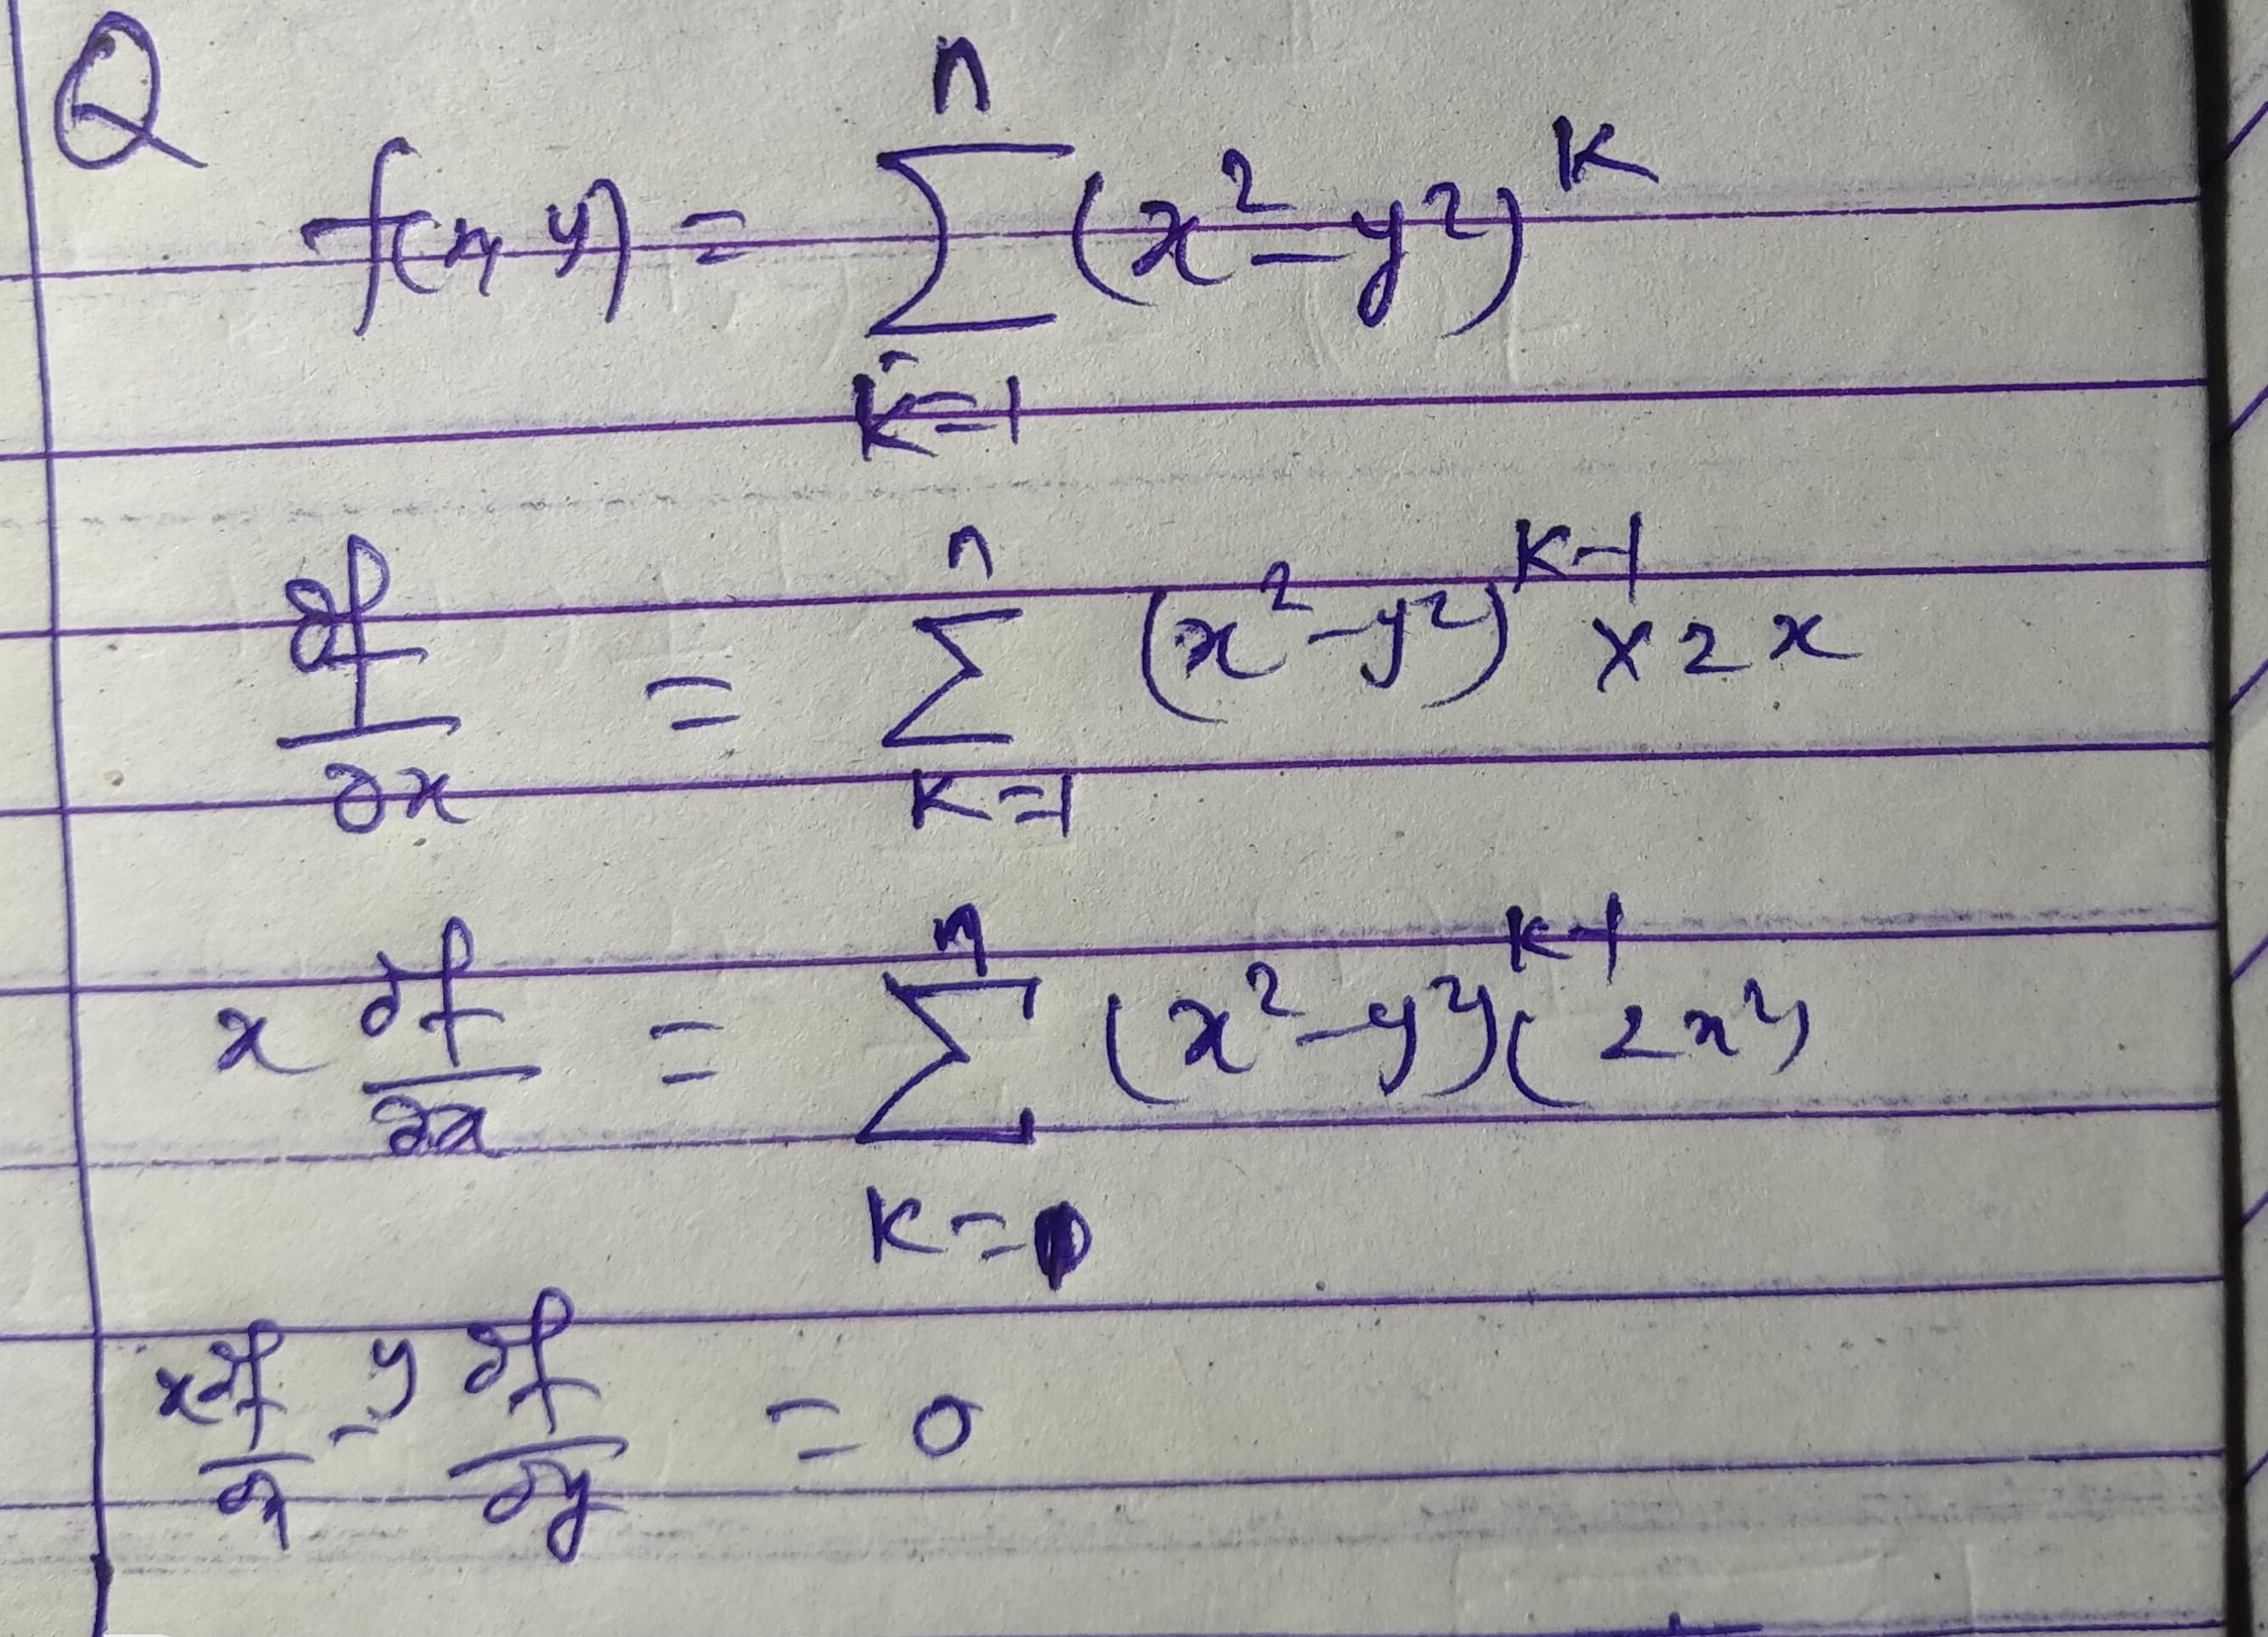 Q
f(x, y) = \sum_{k=1}^{n} (x^2 - y^2)^k
\frac{\partial f}{\partial x} = \sum_{k=1}^{n} (x^2 - y^2)^{k-1} \times 2x
x \frac{\partial f}{\partial x} = \sum_{k=1}^{n} (x^2 - y^2)^{k-1} (2x^2)
x \frac{\partial f}{\partial x} - y \frac{\partial f}{\partial y} = 0